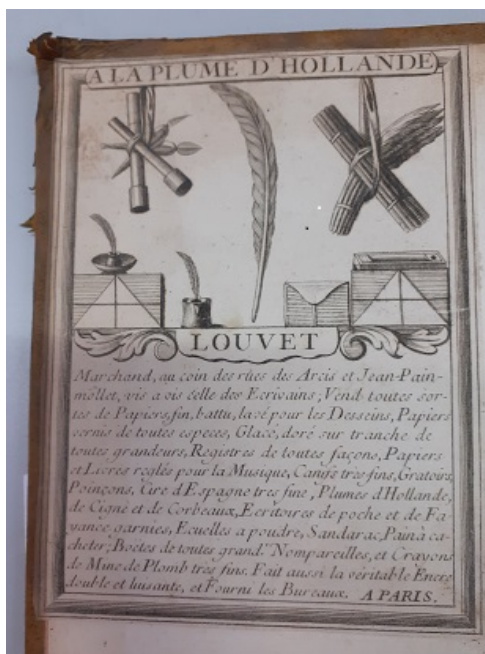 A LA PLUME D'HOLLANDE
LOUVET
Marchand, au coin des rües des Arcis et Jean-Pain-
mollet, vis a vis celle des Ecrivains; Vend toutes sor-
tes de Papiers, fin, battu, lavé pour les Desseins, Papiers
vernis de toutes especes, Glacé, doré sur tranche de
toutes grandeurs, Registres de toutes façons, Papiers
et Livres reglés pour la Musique, Canifs tres-fins, Gratoirs,
Poinçons, Cire d'Espagne tres fine, Plumes d'Hollande,
de Cigne et de Corbeaux, Ecritoires de poche et de Fa-
yance garnies, Ecuelles a poudre, Sandarac, Pain à ca-
cheter; Boetes de toutes grand.rs Nompareilles, et Crayons
de Mine de Plomb tres fins. Fait aussi la véritable Encre
double et luisante, et Fourni les Bureaux. A PARIS.